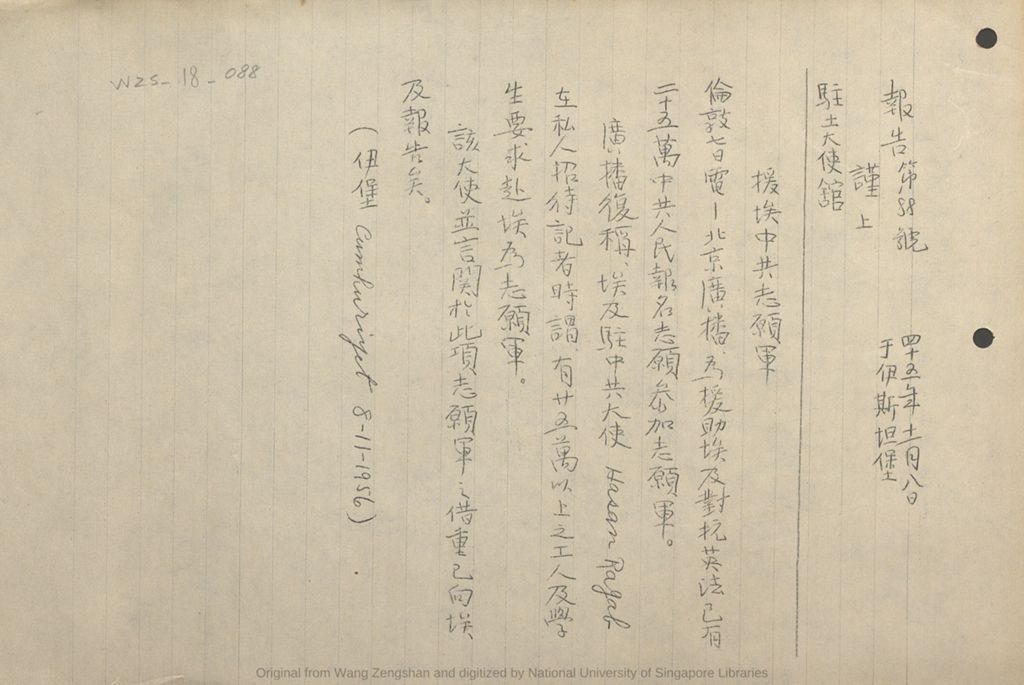 報告第88號
四十五年十一月八日
于伊斯坦堡
謹上
駐土大使館
援埃中共志願軍
倫敦七日電—北京廣播、為援助埃及對抗英法已有
二十五萬中共人民報名志願參加志願軍。
廣播復稱、埃及駐中共大使 Hasan Ragab
在私人招待記者時謂、有廿五萬以上之工人及學
生要求赴埃為志願軍。
該大使並言関於此項志願軍之借重已向埃
及報告矣。
(伊堡 Cumhuriyet 8-11-1956)
WZS-18-088
Original from Wang Zengshan and digitized by National University of Singapore Libraries